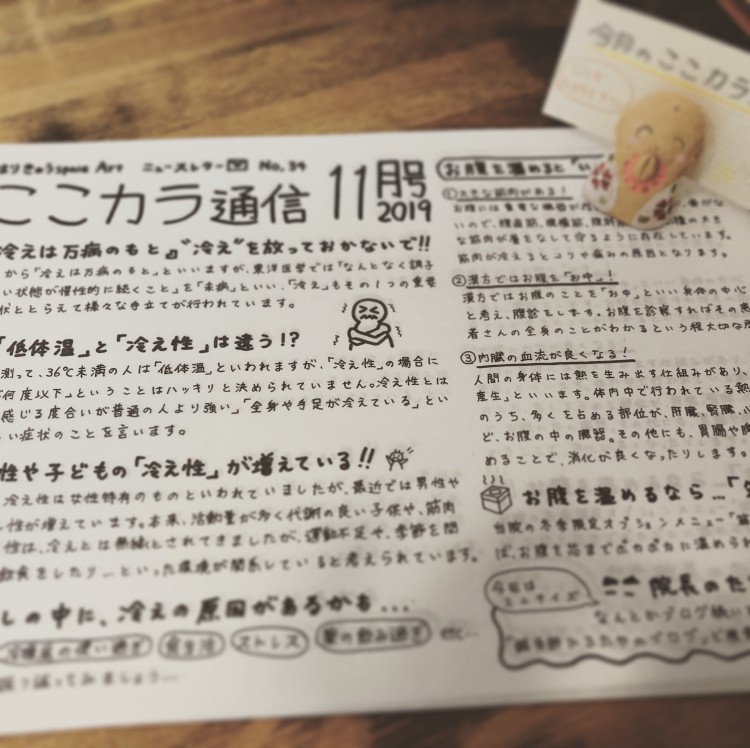 はりきゅうspace Art ニュースレター No.34
ここカラ通信 11月号 2019
冷えは万病のもと』"冷え"を放っておかないで!!
から「冷えは万病のもと」といいますが、東洋医学では「なんとなく調子
い状態が慢性的に続くこと」を「未病」といい、「冷え」もその1つの重要
状ととらえて様々な手立てが行われています。
「低体温」と「冷え性」は違う!?
測って、36℃未満の人は「低体温」といわれますが、「冷え性」の場合に
何度以下」ということはハッキリと決められていません。冷え性とは
感じる度合いが普通の人より強い」「全身や手足が冷えている」とい
い症状のことを言います。
性や子どもの「冷え性」が増えている!!
冷え性は女性特有のものといわれていましたが、最近では男性や
性が増えています。本来、活動量が多く代謝の良い子供や、筋肉
性は、冷えとは無縁とされてきましたが、運動不足や、季節を問
飲食をしたり…といった環境が関係していると考えられています。
しの中に、冷えの原因があるかも...
冷暖房の使い過ぎ 食生活 ストレス 薬の飲み過ぎ etc...
振り返ってみましょう...
お腹を温めると「い
①大きな筋肉がある!
お腹には重要な臓器が
いので、腹直筋、腹横筋、腹斜 種の大き
な筋肉が層をなして守るように存在しています。
筋肉が冷えるとコリや痛みの原因となります。
②漢方ではお腹を「お中」!
漢方ではお腹のことを「お中」といい身体の中心
と考え、腹診をします。お腹を診察すればその患
者さんの全身のことがわかるという程大切な
③内臓の血流が良くなる!
人間の身体には熱を生み出す仕組みがあり、
産生」といいます。体内中で行われている熱
のうち、多くを占める部位が、肝臓、腎臓、
ど、お腹の中の臓器。その他にも、胃腸や
めることで、消化が良くなったりします。
お腹を温めるなら…「
当院の冬季限定オプションメニュー「
ば、お腹を芯までポカポカに温められ
今回は ミニサイズ
院長のた
なんとかブログ続い
今月のここカラ